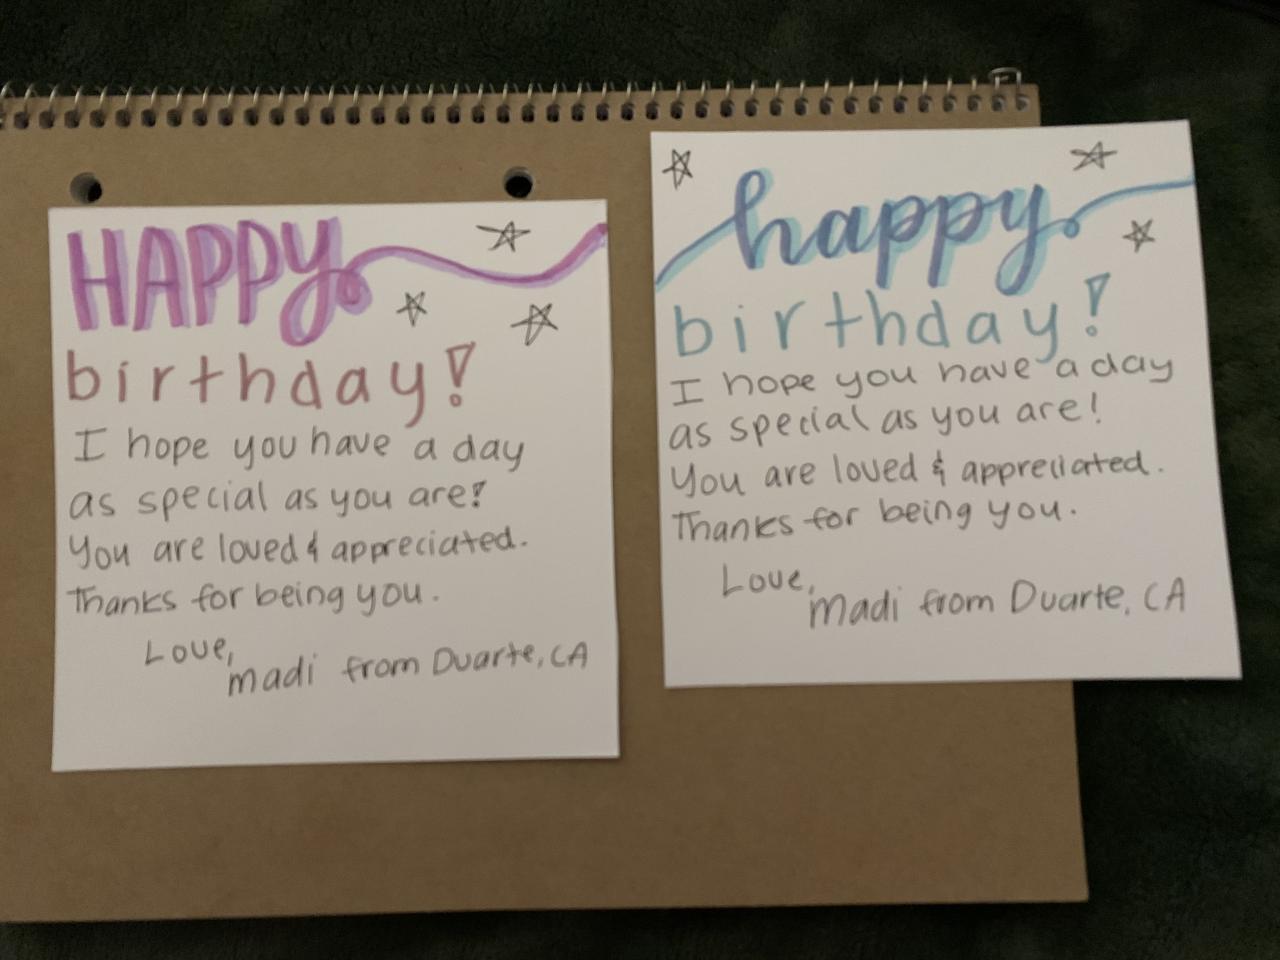 HAPPY
birthday!
I hope you have a day
as special as you are!
You are loved & appreciated.
Thanks for being you.
Love,
madi from Duarte, CA
happy
birthday!
I hope you have a day
as special as you are!
You are loved & appreciated.
Thanks for being you.
Love,
madi from Duarte, CA